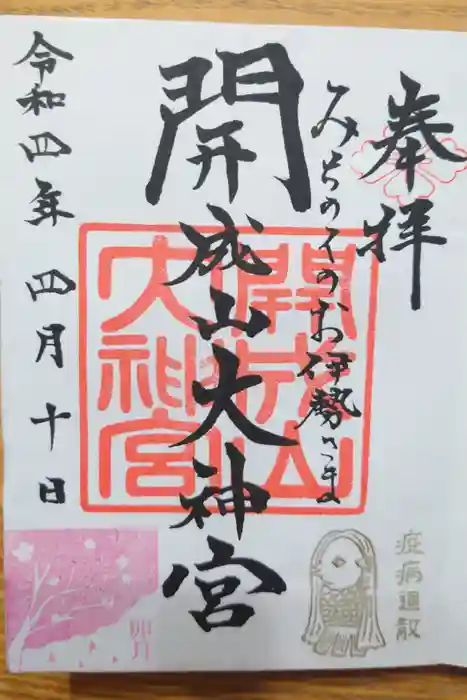 奉拝
みちのくのお伊勢さま
開成山大神宮
令和四年 四月 十日
開成山
大神宮
疫病退散
卯月